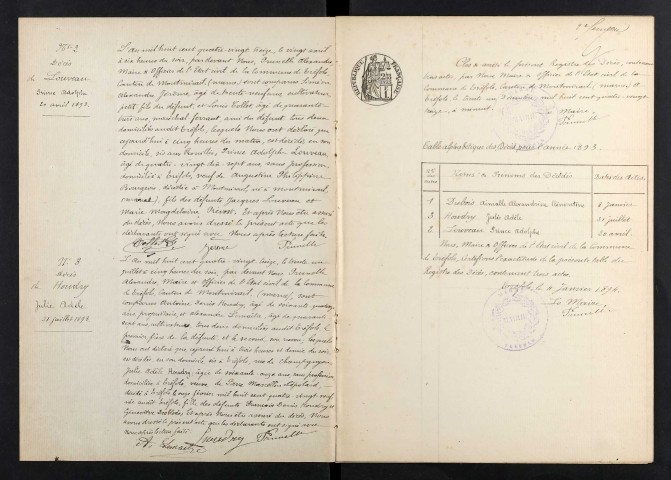 N° 2
Décès
de Louveau
Prime Adolphe
20 avril 1893
L'an mil huit cent quatre-vingt treize, le vingt avril
à six heures du soir, par devant Nous, Prunelle Alexandre
Maire et Officier de l'Etat civil de la Commune de Tréfols,
Canton de Montmirail, (Marne) sont comparus
Alexandre âgé de trente-neuf ans, cultivateur,
petit-fils du défunt, et Louis Collet âgé de quarante-
ans, maréchal ferrant, ami du défunt, tous deux
domiciliés audit Tréfols, lesquels Nous ont déclaré que
aujourd'hui à cinq heures du matin, est décédé, en son
domicile, Prime Adolphe Louveau,
âgé de quatre-vingt-sept ans, sans profession,
domicilié à Tréfols, veuf de Augustine Philippine
Bourgeois, décédée à Montmirail, né à Montmirail,
(Marne), fils des défunts Jacques Louveau et
Marie Magdeleine Prévost. Et après Nous être assuré
du décès, Nous avons dressé le présent acte que les
déclarants ont signé avec Nous après lecture faite.
Collet Prunelle
N° 3
décès
de Houdry
Julie Adèle
31 juillet 1893
L'An mil huit cent quatre vingt treize, le trente un
juillet à cinq heures du soir, par devant Nous Prunelle
Alexandre, Maire et Officier de l'Etat civil de la Commune
de Tréfols, Canton de Montmirail, (Marne) sont
comparus Antoine Denis Houdry, âgé de soixante quatorze
ans, propriétaire, et Alexandre âgé de quarante
sept ans, tous deux domiciliés audit Tréfols, le
premier frère de la défunte, et le second son voisin, lesquels
Nous ont déclaré que aujourd'hui à trois heures et demie du soir
est décédée, en son domicile sis à Tréfols, rue de
Julie Adèle Houdry, âgée de soixante onze ans, sans profession
domiciliée à Tréfols, veuve de
décédé à Tréfols le onze février mil huit cent quatre vingt neuf
née audit Tréfols, fille des défunts François Denis Houdry et
Geneviève Et après Nous être assuré du décès, Nous
avons dressé le présent acte que les déclarants ont signé avec
nous après lecture faite.
Houdry Prunelle
RÉPUBLIQUE FRANÇAISE
Clos et arrêté le présent Registre des Décès,
par Nous Maire et Officier de l'Etat civil de la
Commune de Tréfols, Canton de Montmirail (Marne) à
Tréfols, le trente un Décembre, mil huit cent quatre-vingt
treize, à minuit.
Le Maire,
Prunelle
Table alphabétique des Décès pour l'année 1893.
Noms et Prénoms des Décédés Dates des Actes
1 Dubois Armelle Alexandrine Clémentine 4 janvier
3 Houdry Julie Adèle 31 juillet
2 Louveau Prime Adolphe 20 avril
Nous, Maire et Officier de l'Etat civil de la Commune
de Tréfols, certifions l'exactitude de la présente table du
Registre des Décès, contenant trois actes.
Tréfols, le 4 janvier 1894.
Le Maire,
Prunelle